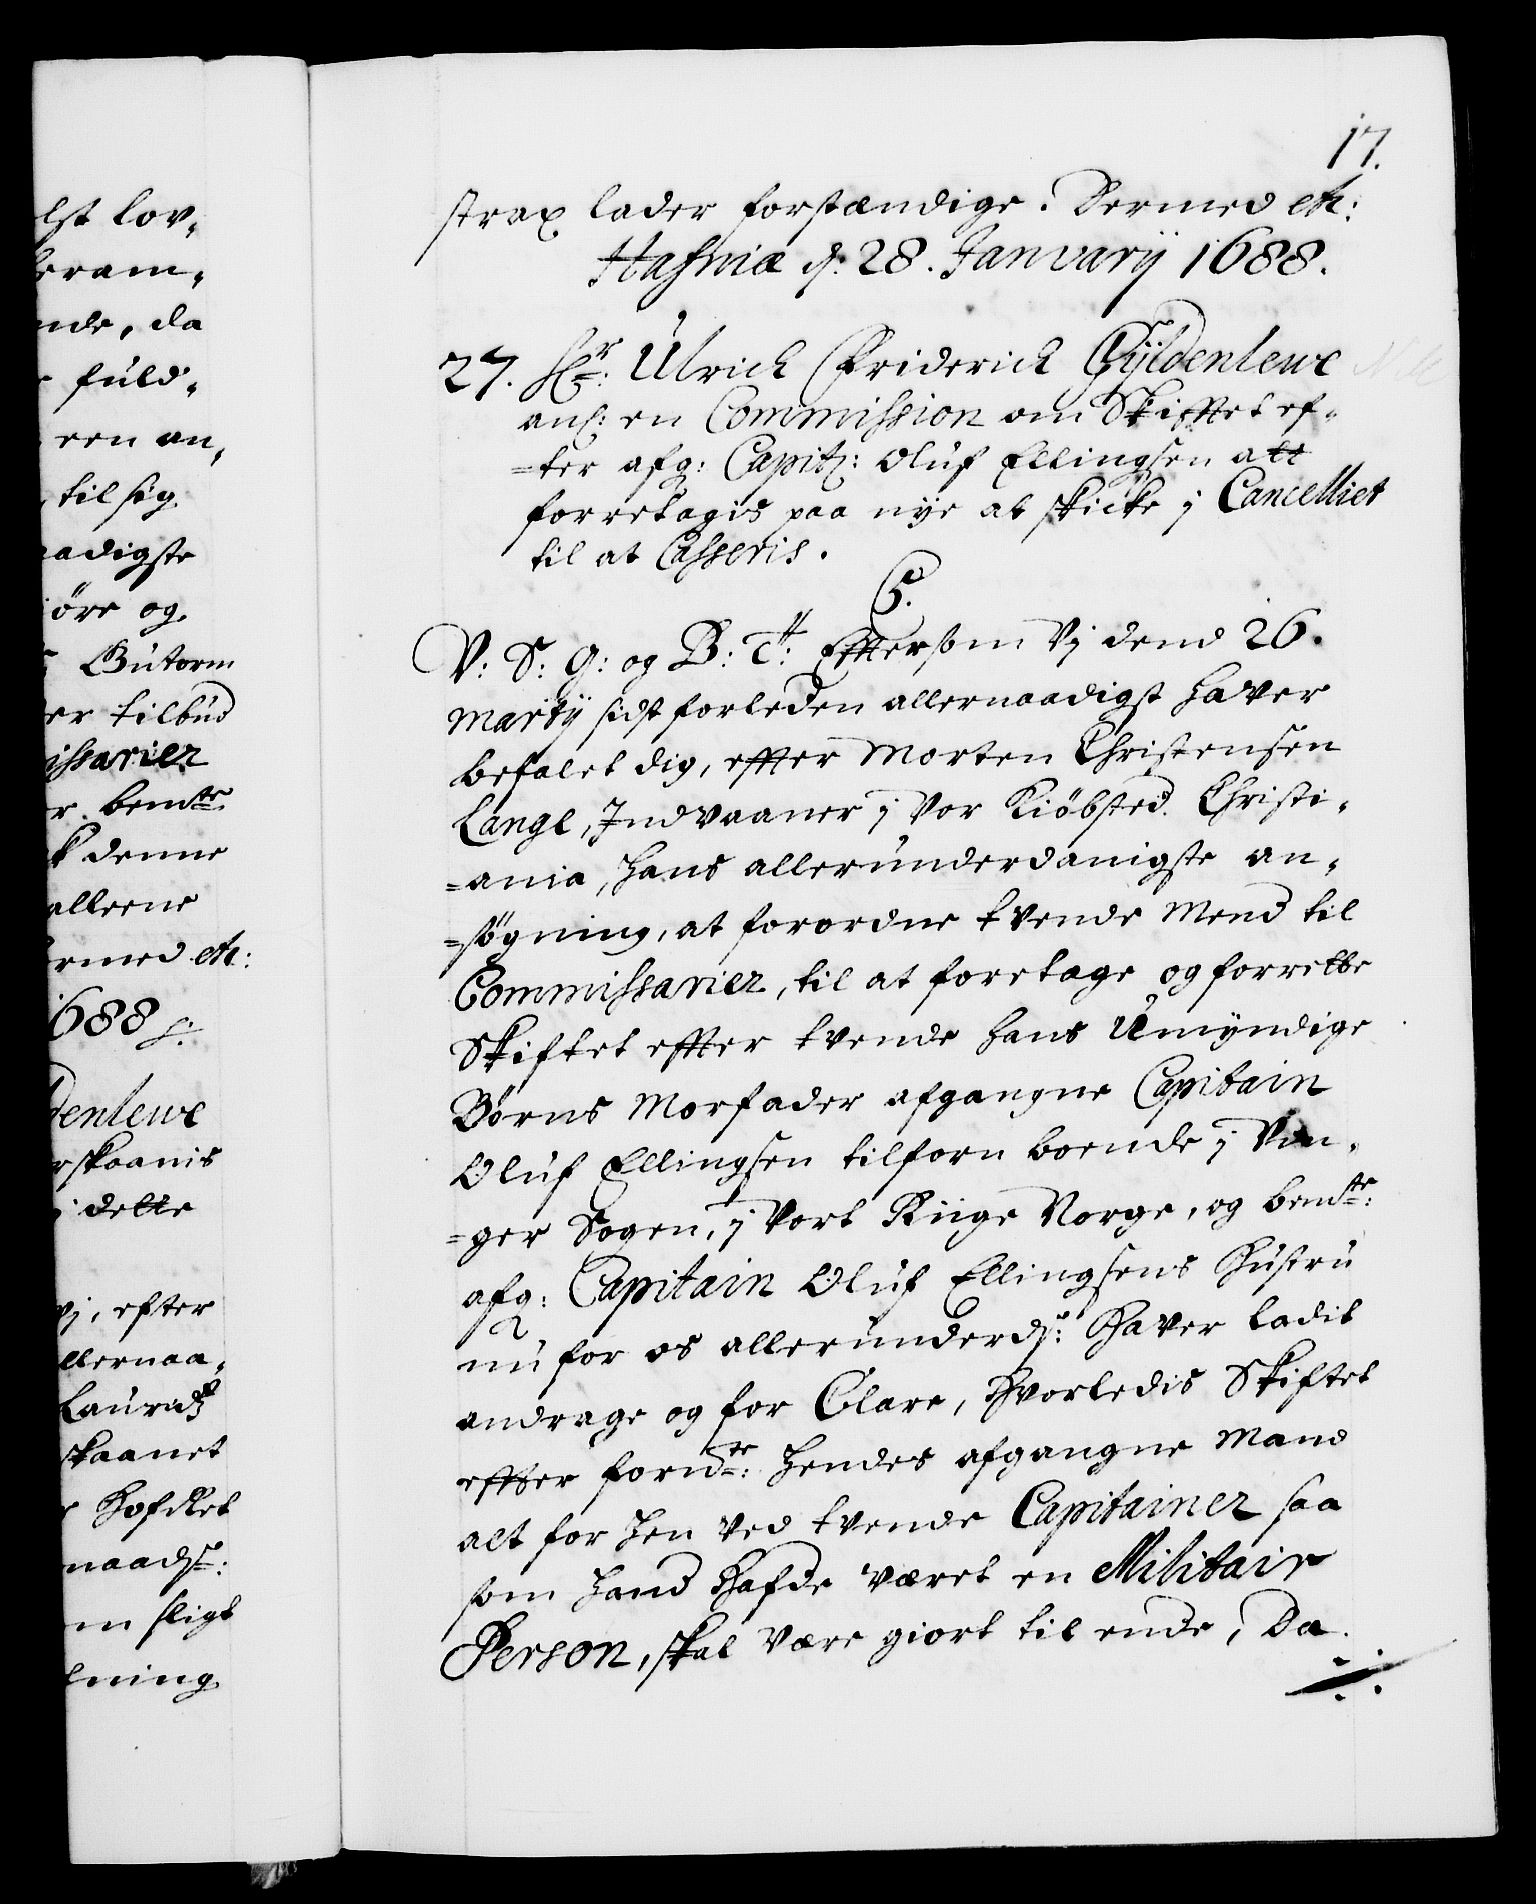 17.
strax lader forstændige. Dermed etc:
Hafniæ d: 28. Januarij 1688.
27. Hr: Ulrich Friderich Gyldenlewe
anl: en Commission om Skifftet ef-
=ter afg: Capit: Oluf Ellingsen att
forretagis paa nye at skicke j Cancelliet
til at Casseris.
C5.
V: S: G: og B: T: Efftersom Vj dend 26.
Martij sidst forleden allernaadigst haver
befalet dig, effter Morten Christensen
Lange, Indvaaner j Vor Kiøbsted Christi-
=ania, hans allerunderdanigste an-
=søgning, at forordne tvende Mend til
Commissarier, til at foretage og forrette
Skiftet effter tvende hans Umyndige
Børns Morfader afgangne Capitain
Oluf Ellingsen tilforn boende j Van-
=ger Sogen, j Vort Riige Norge, og bemte:
afg: Capitain Oluf Ellingsens Hustru
nu for os allerunderd: Haver ladit
andrage og for Clare, Hvorledis Skiftet
effter fornte: hendes afgangne Mand
alt for hen ved tvende Capitainer saa
som hand Hafde været en Militair
Person, skal være giort til ende, Da
lst lov-
beram-
nde, da
fuld-
een an-
til sig
aadigste
øre og
Gutorm
er tilbud
issarier
r bemte
k denne
alleene
ermed etc:
1688
denlewe
rskaanis
j dette
vj, efter
llernaa-
Lauridtz
skaanet
Hofdret
naadst:
m sligt
lning